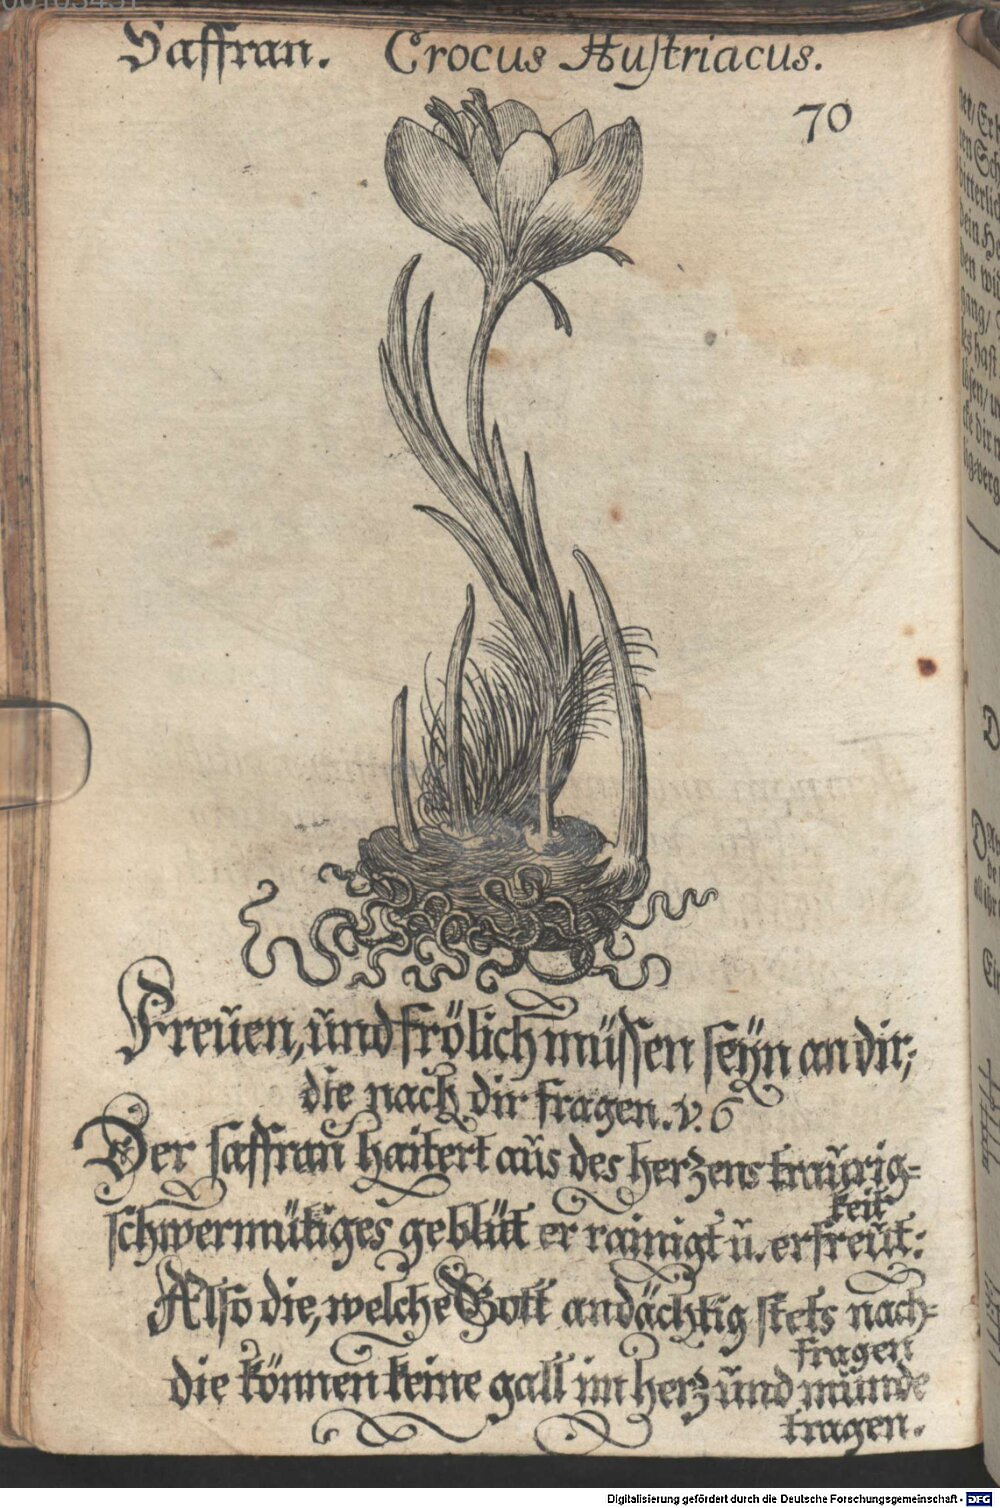 Saffran. Crocus Austriacus.
70
Freüen, ünd frölich müssen seÿn an dir,
die nach dir fragen. v. 6
Der saffran haitert aüs des herzens traürig=
keit
schwermütiges geblüt er rainigt ü. erfreüt:
Also die, welche Gott andächtig stets nach=
fragen
die können keine gall im herz ünd münde
tragen.
Digitalisierung gefördert durch die Deutsche Forschungsgemeinschaft - DFG